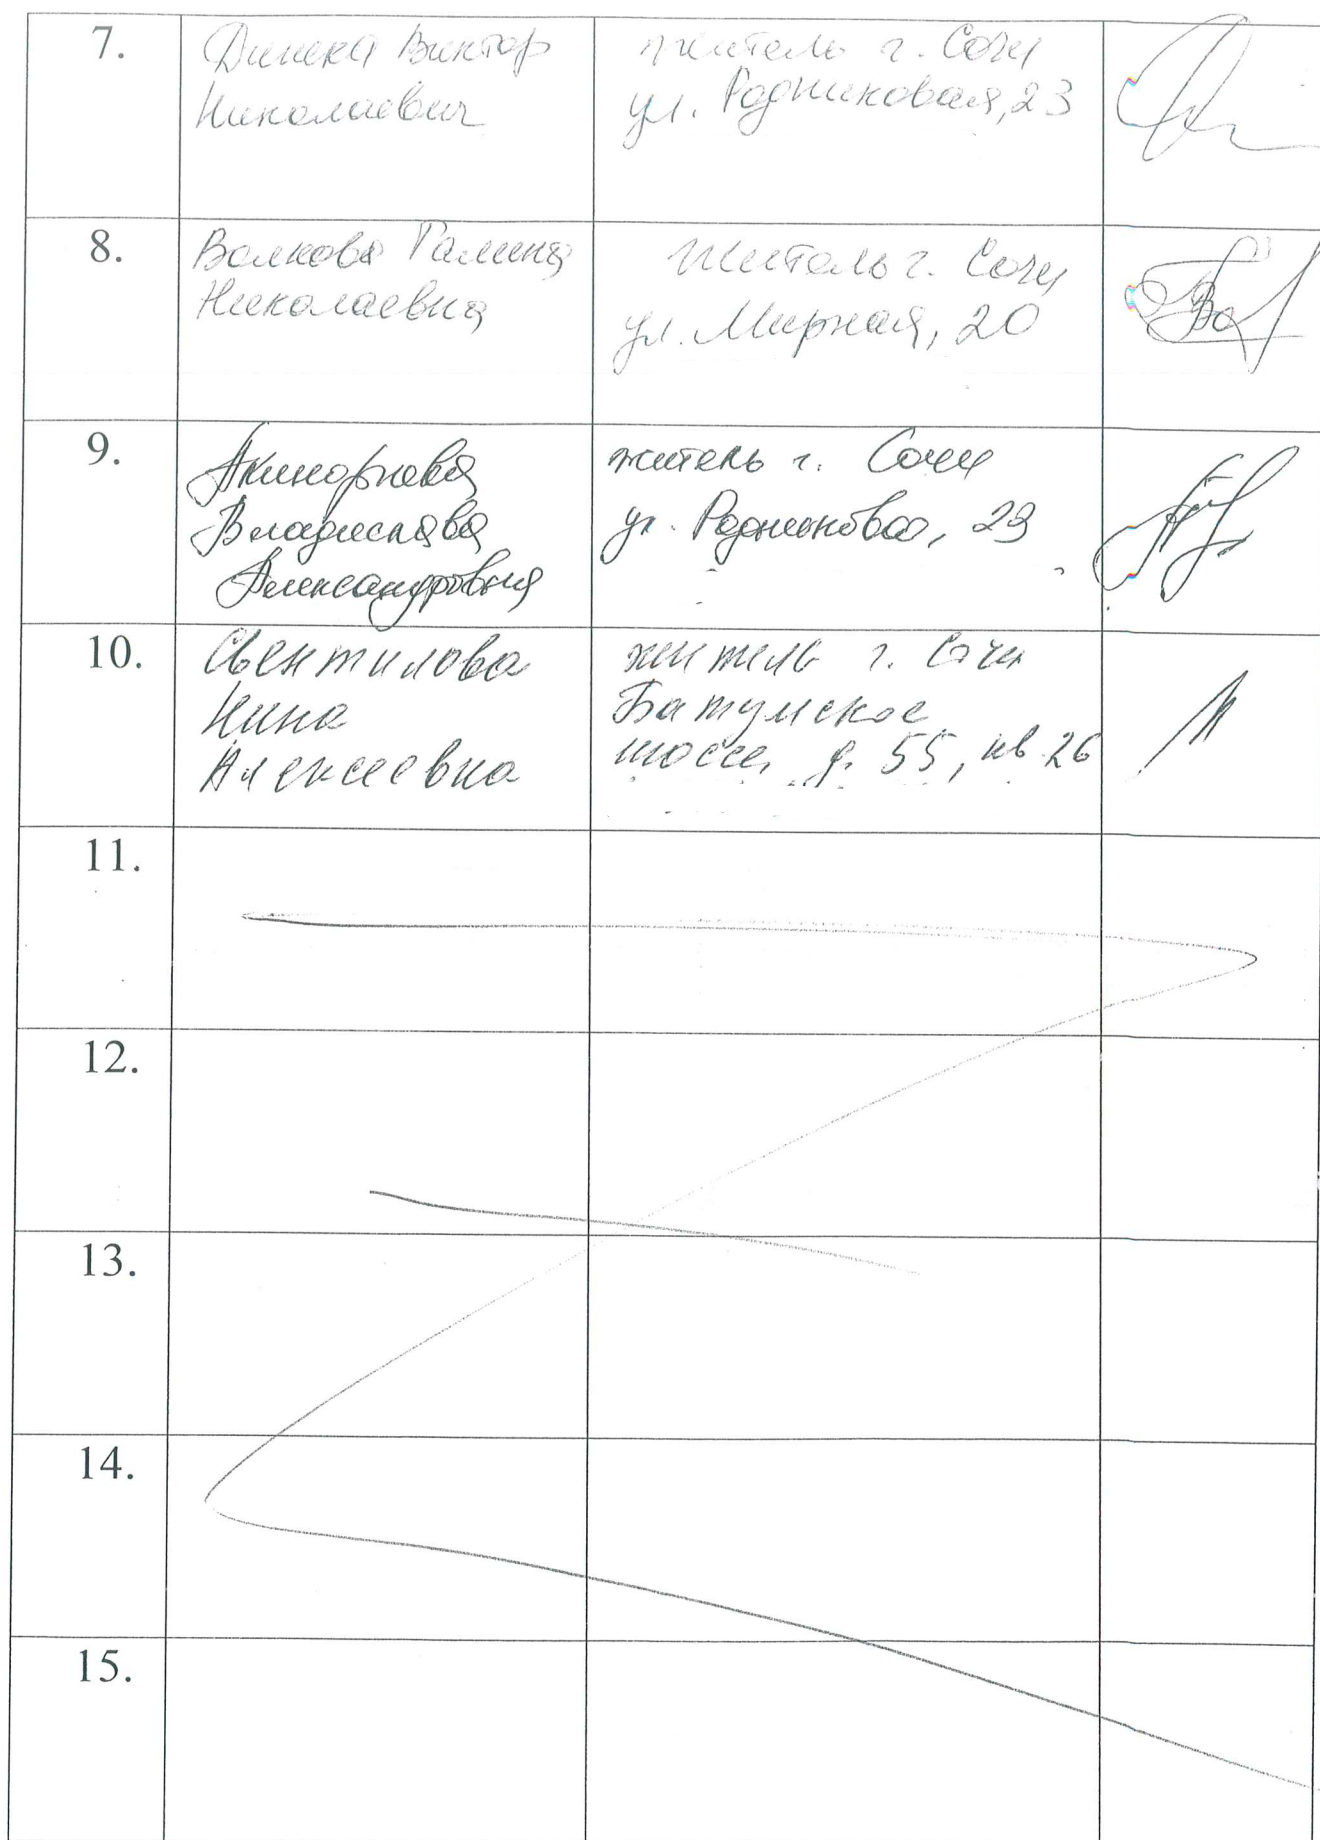 7.
Динека Виктор
Николаевич
житель г. Сочи
ул. Родниковая, 23
8.
Волкова Галина
Николаевна
житель г. Сочи
ул. Мирная, 20
9.
Владислава
Александровна
житель г. Сочи
ул. Родниковая, 23
10.
Свентилова
Нина
Алексеевна
житель г. Сочи
Батумское
шоссе, д. 55, кв. 26
11.
12.
13.
14.
15.